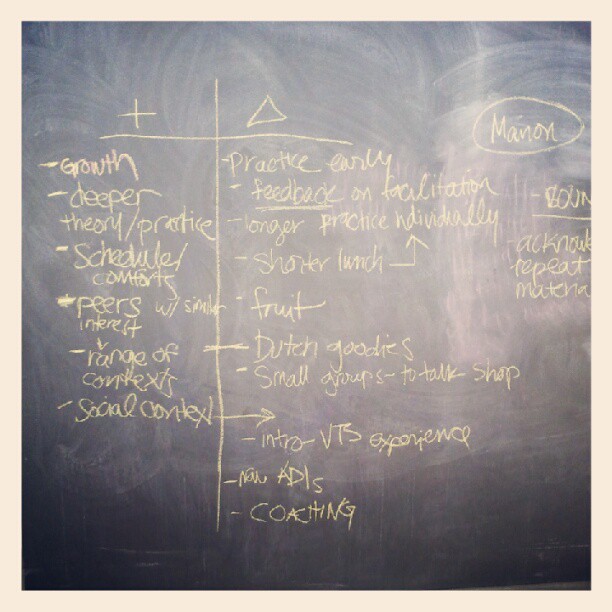 +
- Growth
- deeper
theory/practice
- Schedule/
comforts
- peers w/ similar
interest
- range of
contexts
- Social context
△
- Practice early
- feedback on facilitation
- longer practice individually
- shorter lunch
- fruit
- Dutch goodies
- Small groups - to talk shop
- intro - VTS experience
- new ADIs
- COACHING
Manon
- BOUN
- acknow
repeat
materia